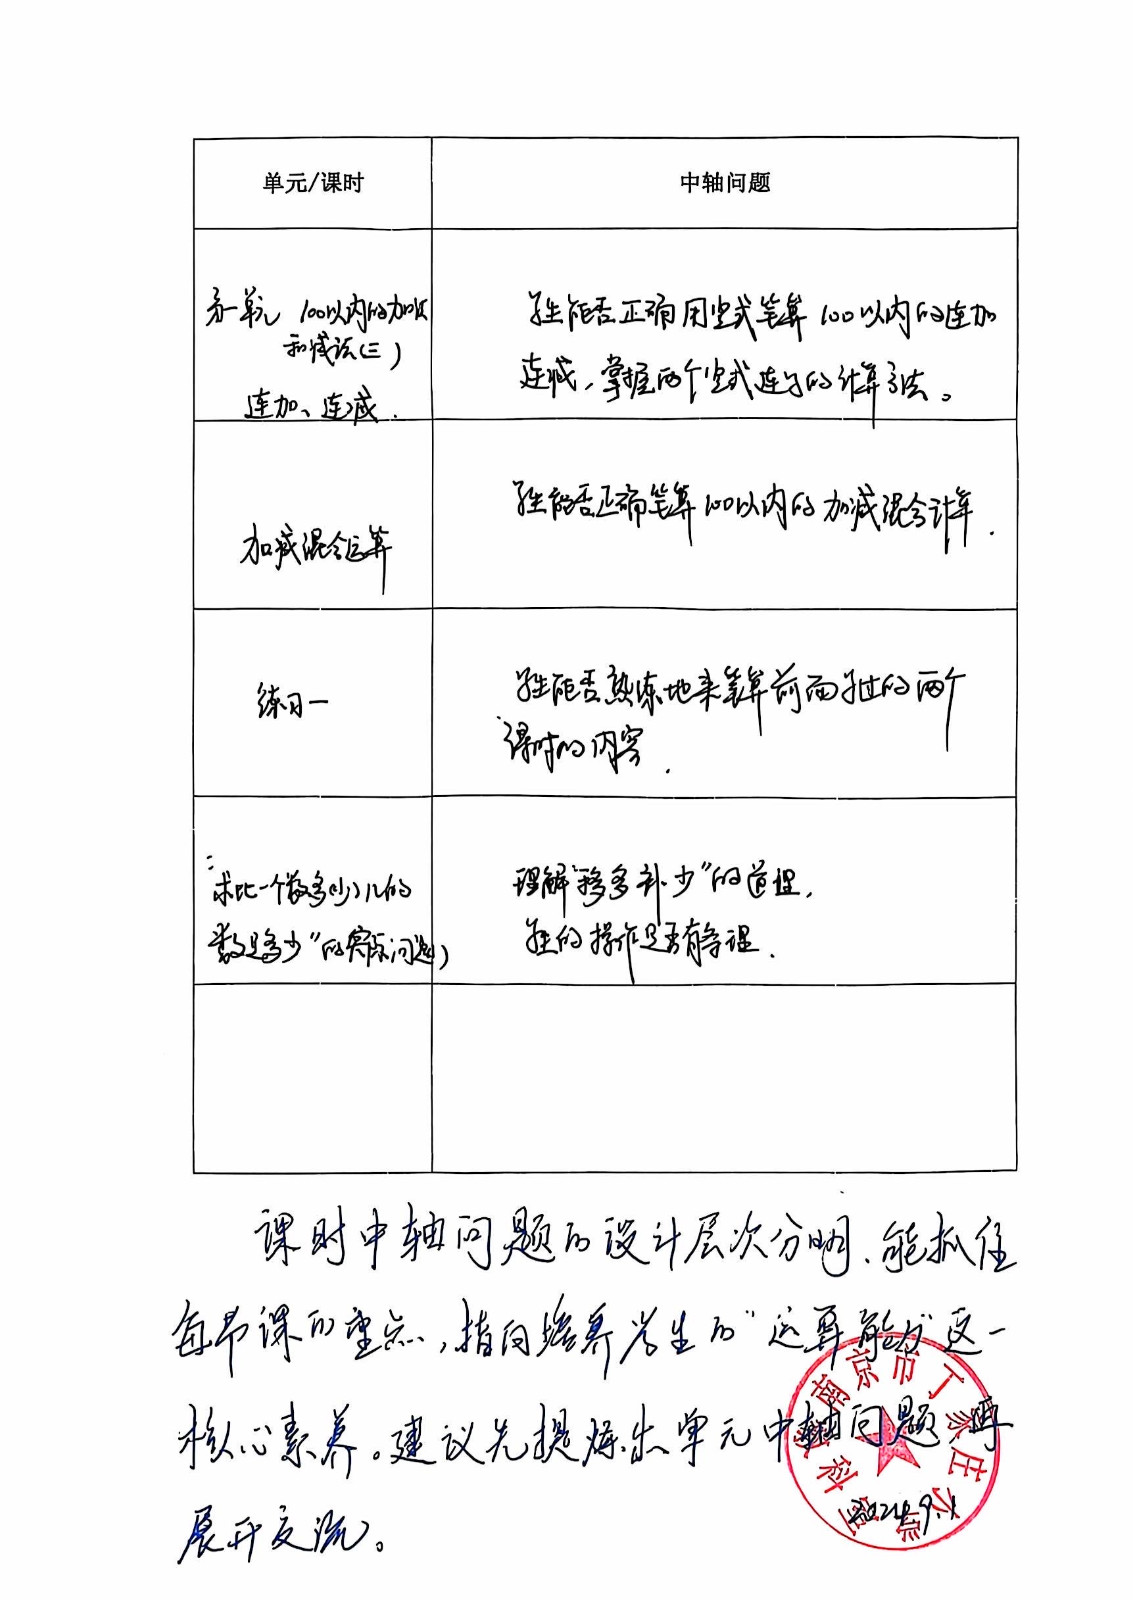 单元/课时
中轴问题
第一单元 100以内的加法
和减法(三)
连加、连减.
学生能否正确用竖式笔算100以内的连加
连减,掌握两个竖式连写的计算方法。
加减混合运算
学生能否正确笔算100以内的加减混合计算.
练习一
学生能否熟练地来笔算前面学过的两个
课时的内容.
求比一个数多(少)几的
数是多少"的实际问题)
理解"移多补少"的道理,
学生的操作是否有条理.
课时中轴问题的设计层次分明、能抓住
每节课的重点,指向培养学生的"运算能力"这一
核心素养。建议先提炼出单元中轴问题,再
展开交流。
南京市丁家庄小学
科室
2024.9.1